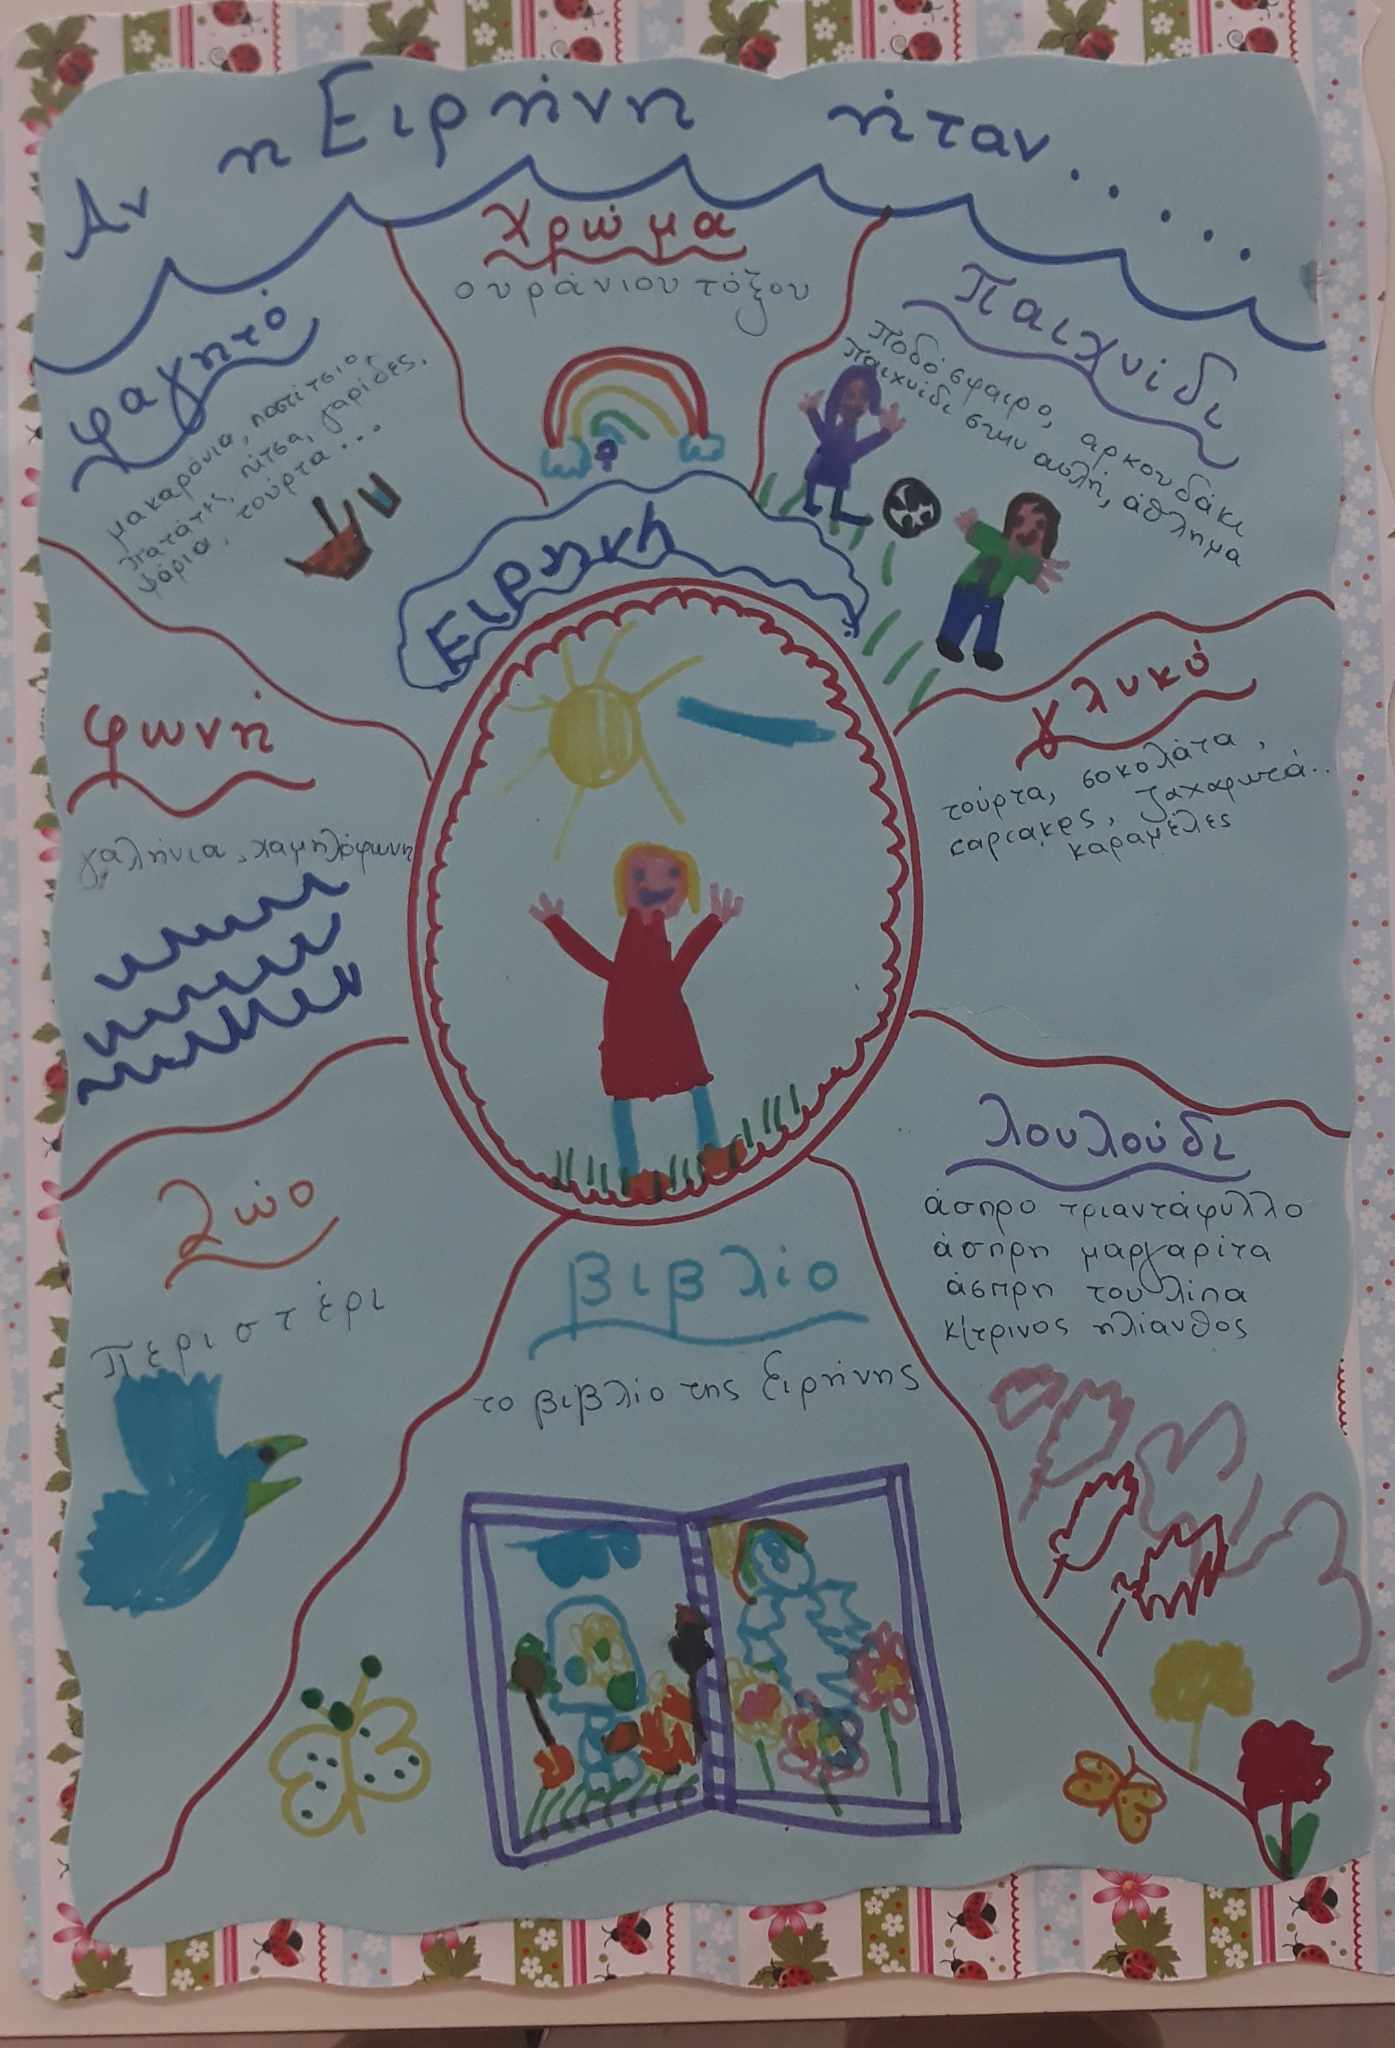 Αν η Ειρήνη ήταν.....
φαγητό
μακαρόνια, παστίτσιο,
πατάτες, πίτσα, γαρίδες,
ψάρια, τούρτα...
Χρώμα
ουράνιου τόξου
Παιχνίδι
Ποδόσφαιρο, αρκουδάκι
παιχνίδι στην αυλή, άθλημα
Ειρηνική
φωνή
γαλήνια, χαμηλόφωνη
γλυκό
τούρτα, σοκολάτα,
cupcakes, ζαχαρωτά..
καραμέλες
Ζώο
περιστέρι
βιβλίο
το βιβλίο της ειρήνης
λουλούδι
άσπρο τριαντάφυλλο
άσπρη μαργαρίτα
άσπρη τουλίπα
κίτρινος ηλίανθος